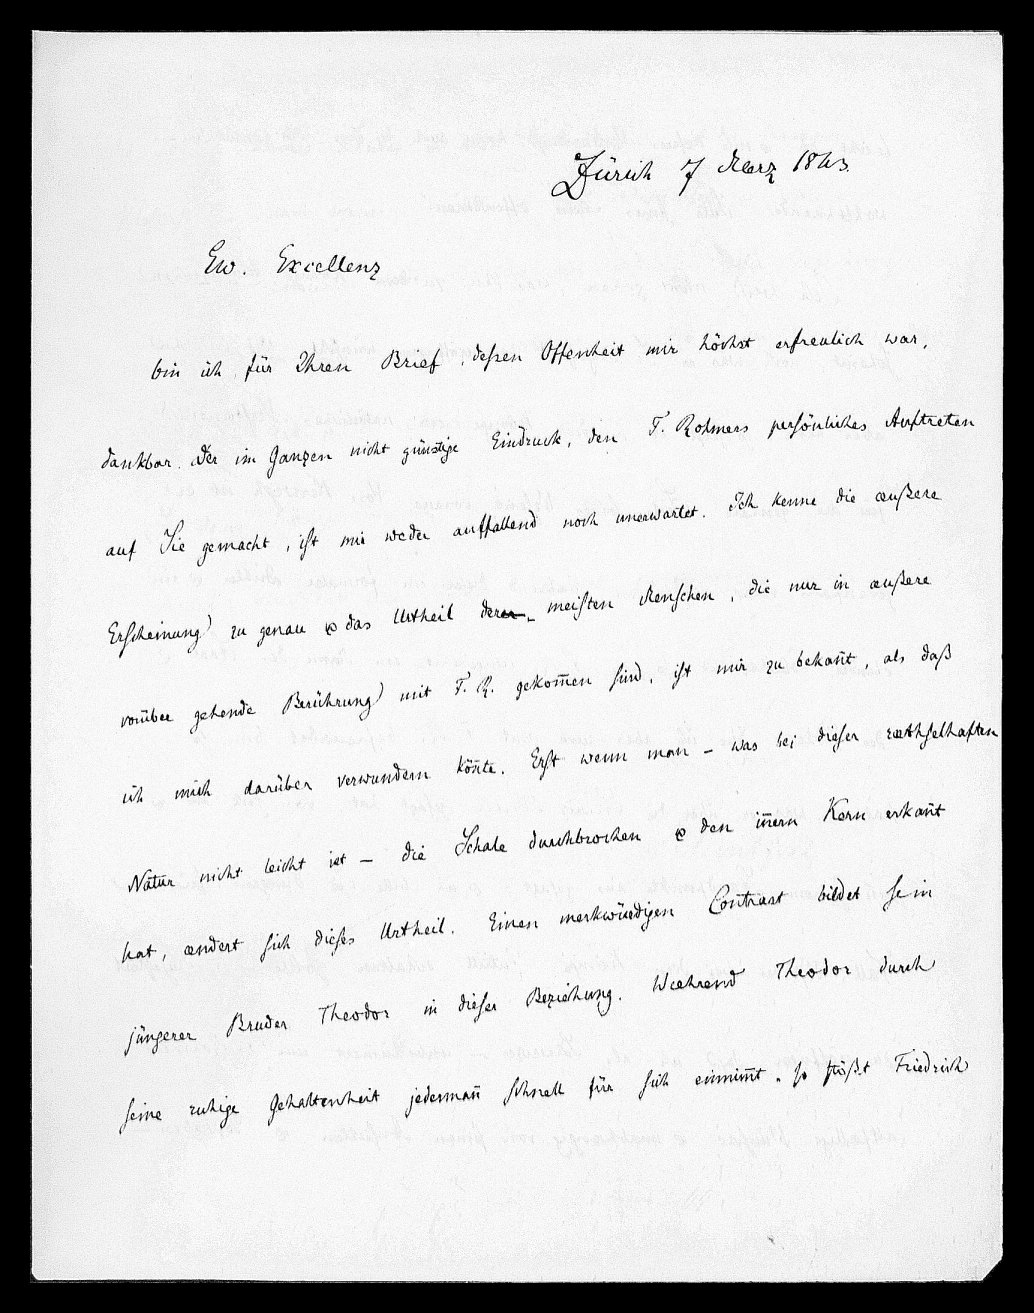 Zürich 7 Merz 1843.
Ew. Excellenz
bin ich, für Ihren Brief, deßen Offenheit mir höchst erfreulich war,
dankbar. Der im Ganzen nicht günstige Eindruck, den F. Rohmers persönliches Auftreten
auf Sie gemacht, ist mir weder auffallend noch unerwartet. Ich kenne die æußere
Erscheinung zu genau & das Urtheil der meisten Menschen, die nur in æußere
vorüber gehende Berührung mit F. R. gekom̅en sind, ist mir zu bekan̅t, als daß
ich mich darüber verwundern kön̅te. Erst wenn man – was bei dieser ræthselhaften
Natur nicht leicht ist – die Schale durchbrochen & den in̅ern Kern erkan̅t
hat, ændert sich dieses Urtheil. Einen merkwürdigen Contrast bildet sein
jüngerer Bruder Theodor in dieser Beziehung. Wæhrend Theodor durch
seine ruhige Gehaltenheit jederman̅ schnell für sich einnim̅t, so stößt Friedrich